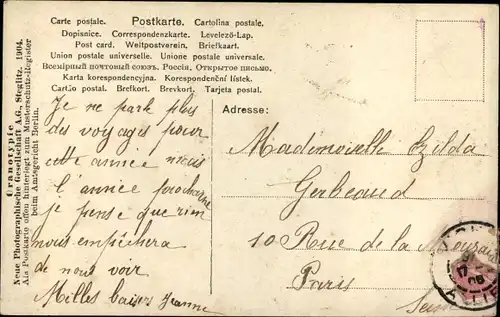 Carte postale. Postkarte. Cartolina postale.
Dopisnice. Correspondenzkarte. Levelező-Lap.
Post card. Weltpostverein. Briefkaart.
Union postale universelle. Unione postale universale.
Всемірный почтовый союзъ. Россія. Открытое письмо.
Karta korespondencyjna. Korespondenční lístek.
Cartão postal. Brefkort. Brevkort. Tarjeta postal.
Uranotypie
Neue Photographische Gesellschaft A.G., Steglitz. 1904.
Als Postkarte offen hinterlegt zum Musterschutz-Register
beim Amtsgericht Berlin.
Je ne park plus
des voyages pour
cette année mais
l'année prochaine
je pense que rien
nous empêchera
de nous voir
Milles baisers Jeanne
Adresse:
Mademoiselle Zilda
Gerbeaud
10 Rue de la
Paris
Seine
17
06